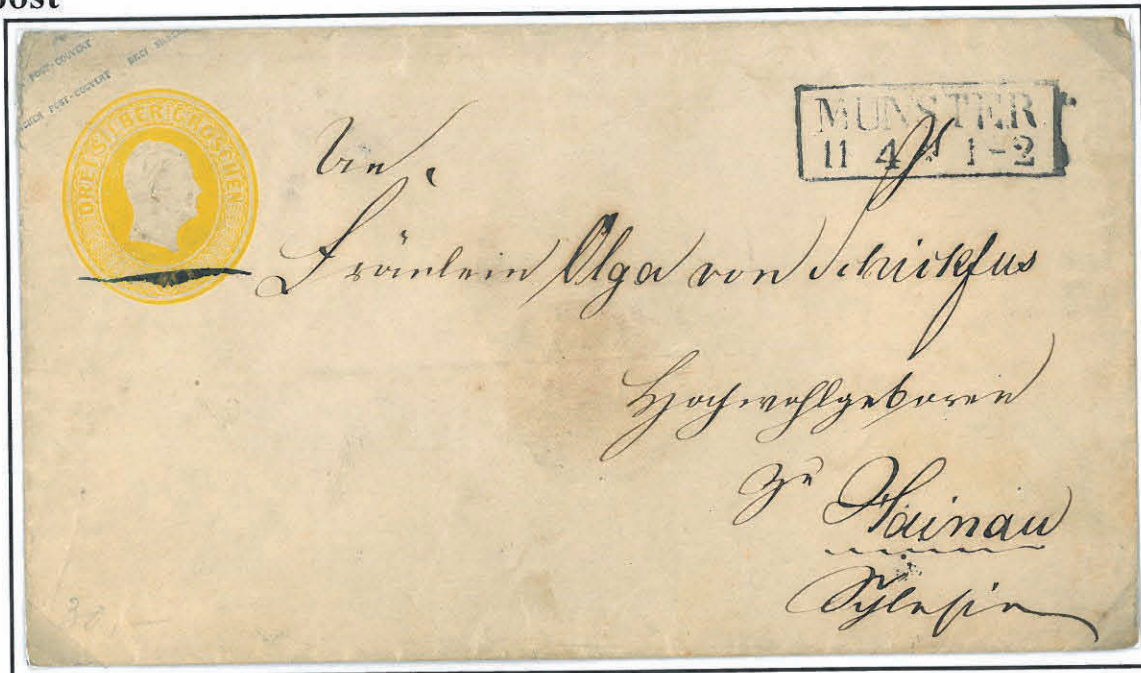 post
POST-COUVERT BRIEF
POST-COUVERT
DREI SILBERGROSCHEN
MÜNSTER
11 4 1-2
An
Fräulein Olga von Schickfus
Hochwohlgeboren
zu Hainau
Schlesien
30,—